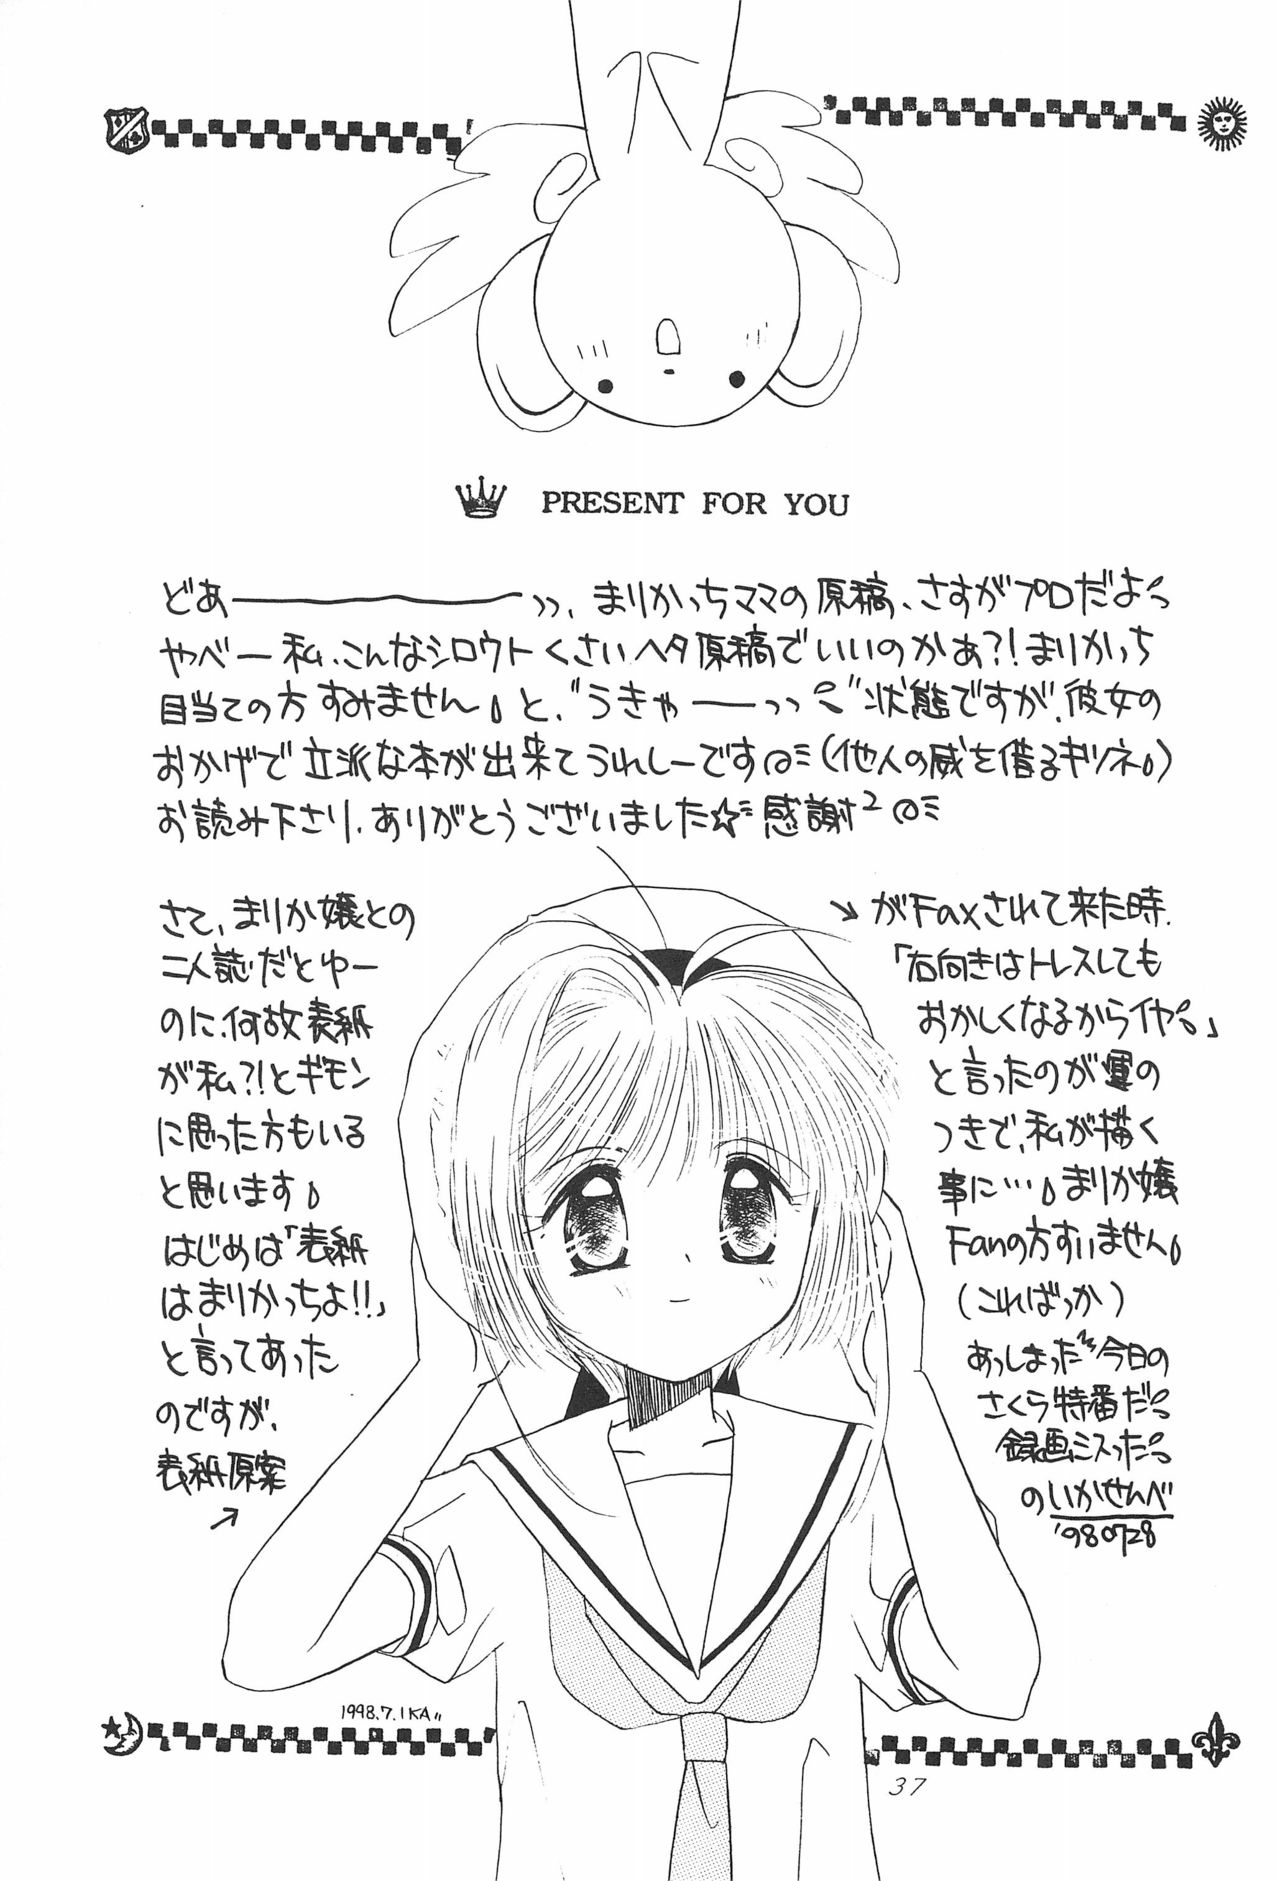 PRESENT FOR YOU
どあーーーーッ、まりかっちママの原稿、さすがプロだよっ
やべー私、こんなシロウトくさいヘタ原稿でいいのかぁ?!まりかっち
目当ての方すみません。と、"うきゃーーッッ"状態ですが、彼女の
おかげで立派な本が出来てうれしーです@ミ(他人の威を借るキツネ。)
お読み下さり、ありがとうございました☆ミ感謝²@ミ
さて、まりか嬢との
二人誌だとゆー
のに、何故表紙
が私?!とギモン
に思った方もいる
と思います。
はじめは「表紙
はまりかっちよ!!」
と言ってあった
のですが、
表紙原案
↗
↘がFaxされて来た時、
「右向きはトレスしても
おかしくなるからイヤ。」
と言ったのが運の
つきで、私が描く
事に…。まりか嬢
Fanの方すいません。
(こればっか)
あっしまった今日の
さくら特番だっ
録画ミスったっ
のいかせんべ
'980728
1998.7.IKA〃
37